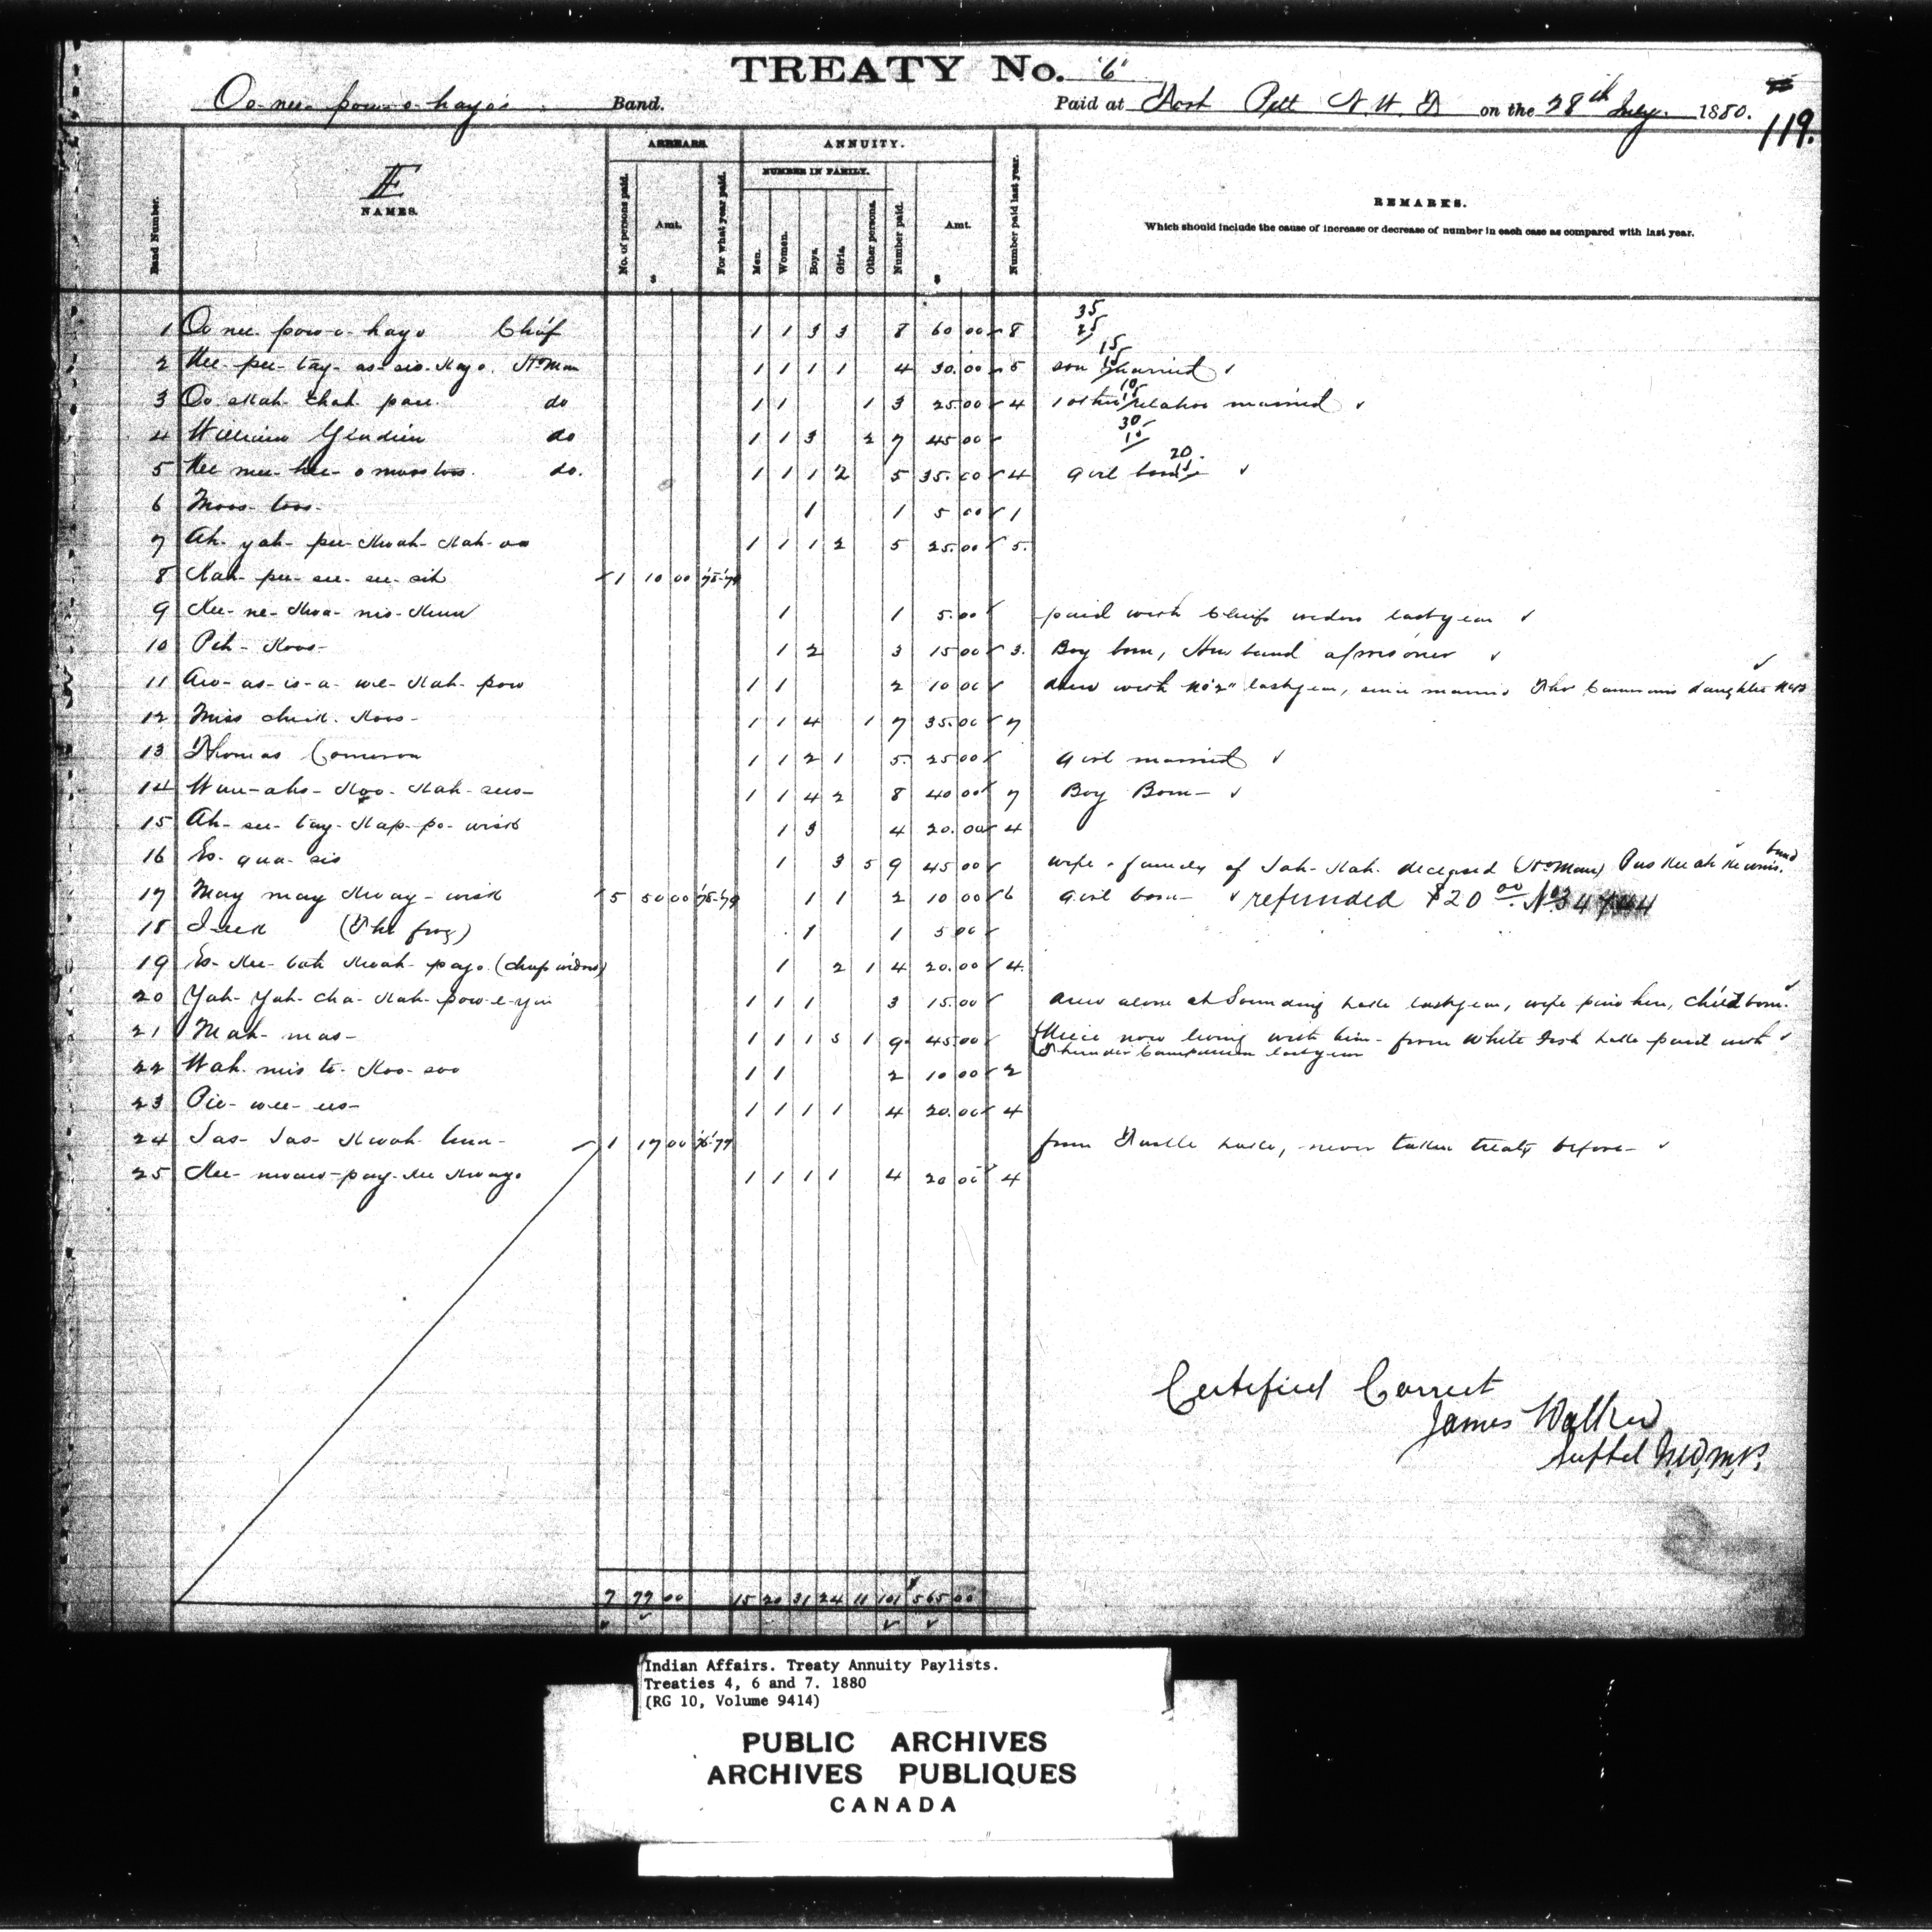 TREATY No. '6'
Oo-nee-pow-o-hayo's Band. Paid at Fort Pitt N.W.T on the 28th July 1880.
119.
E
NAMES.
Band Number.
ARREARS.
No. of persons paid.
Amt.
$
For what year paid.
ANNUITY.
NUMBER IN FAMILY.
Men.
Women.
Boys.
Girls.
Other persons.
Number paid.
Amt.
$
Number paid last year.
REMARKS.
Which should include the cause of increase or decrease of number in each case as compared with last year.
1 Oo nee-pow-o-hayo Chief 1 1 3 3 8 60 00 8 35 25
2 Kee-pee-tay-as-sis-Kayo. Hd Man 1 1 1 1 4 30.00 5 son married 15 15
3 Oo-Kah-chah-pau. do 1 1 1 3 25.00 4 1 other relation married 10 15
4 William Gladieu do 1 1 3 2 7 45 00 30 15
5 Kee mee-hee-o moostoos. do. 1 1 1 2 5 35.00 4 Girl born 20. 15
6 Moos-toos- 1 1 5 00 1
7 Ah-yah-pee-Kwah-Kah-oo 1 1 1 2 5 25.00 5.
8 Kah-pee-see-see-sih 1 10 00 '78-'79
9 Kee-ne-Kwa-nis-Kum 1 1 5.00 paid with Chiefs widow last year
10 Peh-Koos- 1 2 3 15 00 3. Boy born, Husband a prisoner
11 Aw-as-is-a-we-Kah-pow 1 1 2 10 00 drew with No "2" last year, since married Thos Camerons daughter No 13
12 Miss chick-Koos- 1 1 4 1 7 35.00 7
13 Thomas Cameron 1 1 2 1 5. 25 00 Girl married
14 Wau-aho-Koo-Kah-sus- 1 1 4 2 8 40 00 7 Boy Born-
15 Ah-see-tay-Kap-po-wisk 1 3 4 20.00 4
16 Es-qua-sis 1 3 5 9 45 00 wife & family of Jah-Kah- deceased (Hd Man) Pas Kee ah Ke wins. band
17 May may Kway-wisk 5 50 00 '78-'79 1 1 2 10 00 6 Girl born- refunded $20 00 No 34
18 (The frog) 1 1 5 00
19 Es-Kee-bah Kwah-payo. (chiefs widow) 1 2 1 4 20.00 4.
20 Yah-Yah-cha-Kah-pow-e-yin 1 1 1 3 15.00 drew alone at Sounding Lake last year, wife paid here, child born.
21 Mah-mas- 1 1 1 5 1 9 45 00 Niece now living with him- from White Fish Lake paid with
Thunder Companion last year
22 Wah-mis te-Koo-soo 1 1 2 10 00 2
23 Pie-wee-us- 1 1 1 1 4 20.00 4
24 Sas-Sas-Kwah-hum- 1 17 00 '76-'77 from Turtle Lake, never taken treaty before-
25 Kee-mwaw-pay-Kee Kwayo 1 1 1 1 4 20 00 4
Certified Correct
James Walker
Suptd N.W.M.P.
7 77 00 15 20 31 24 11 101 $565 00
Indian Affairs. Treaty Annuity Paylists.
Treaties 4, 6 and 7. 1880
(RG 10, Volume 9414)
PUBLIC ARCHIVES
ARCHIVES PUBLIQUES
CANADA